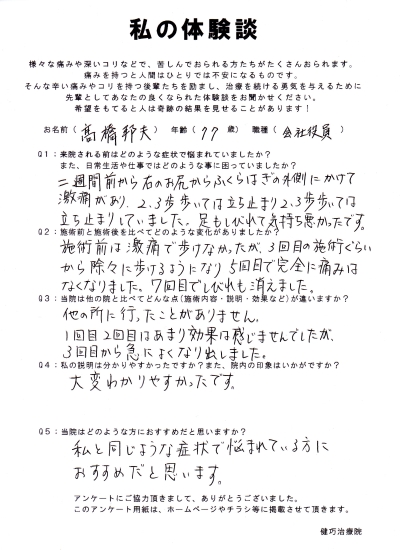 私の体験談
様々な痛みや深いコリなどで、苦しんでおられる方たちがたくさんおられます。
痛みを持つと人間はひとりでは不安になるものです。
そんな辛い痛みやコリを持つ後輩たちを励まし、治療を続ける勇気を与えるために
先輩としてあなたの良くなられた体験談をお聞かせください。
希望をもてると人は奇跡の結果を見せることがあります！
お名前（ 髙橋邦夫 ）年齢（ 77 歳）職種（ 会社役員 ）
Q1：来院される前はどのような症状で悩まれていましたか？
また、日常生活や仕事ではどのような事に困っていましたか？
二週間前から右のお尻からふくらはぎの外側にかけて
激痛があり、2、3歩歩いては立ち止まり2、3歩歩いては
立ち止まりしていました。足もしびれて気持ち悪かったです。
Q2：施術前と施術後を比べてどのような変化がありましたか？
施術前は激痛で歩けなかったが、3回目の施術ぐらい
から除々に歩けるようになり5回目で完全に痛みは
なくなりました。7回目でしびれも消えました。
Q3：当院は他の院と比べてどんな点(施術内容・説明・効果など)が違いますか？
他の所に行ったことがありません。
1回目2回目はあまり効果は感じませんでしたが、
3回目から急によくなり出しました。
Q4：私の説明は分かりやすかったですか？また、院内の印象はいかがですか？
大変わかりやすかったです。
Q5：当院はどのような方におすすめだと思いますか？
私と同じような症状で悩まれている方に
おすすめだと思います。
アンケートにご協力頂きまして、ありがとうございました。
このアンケート用紙は、ホームページやチラシ等に掲載させて頂きます。
健巧治療院